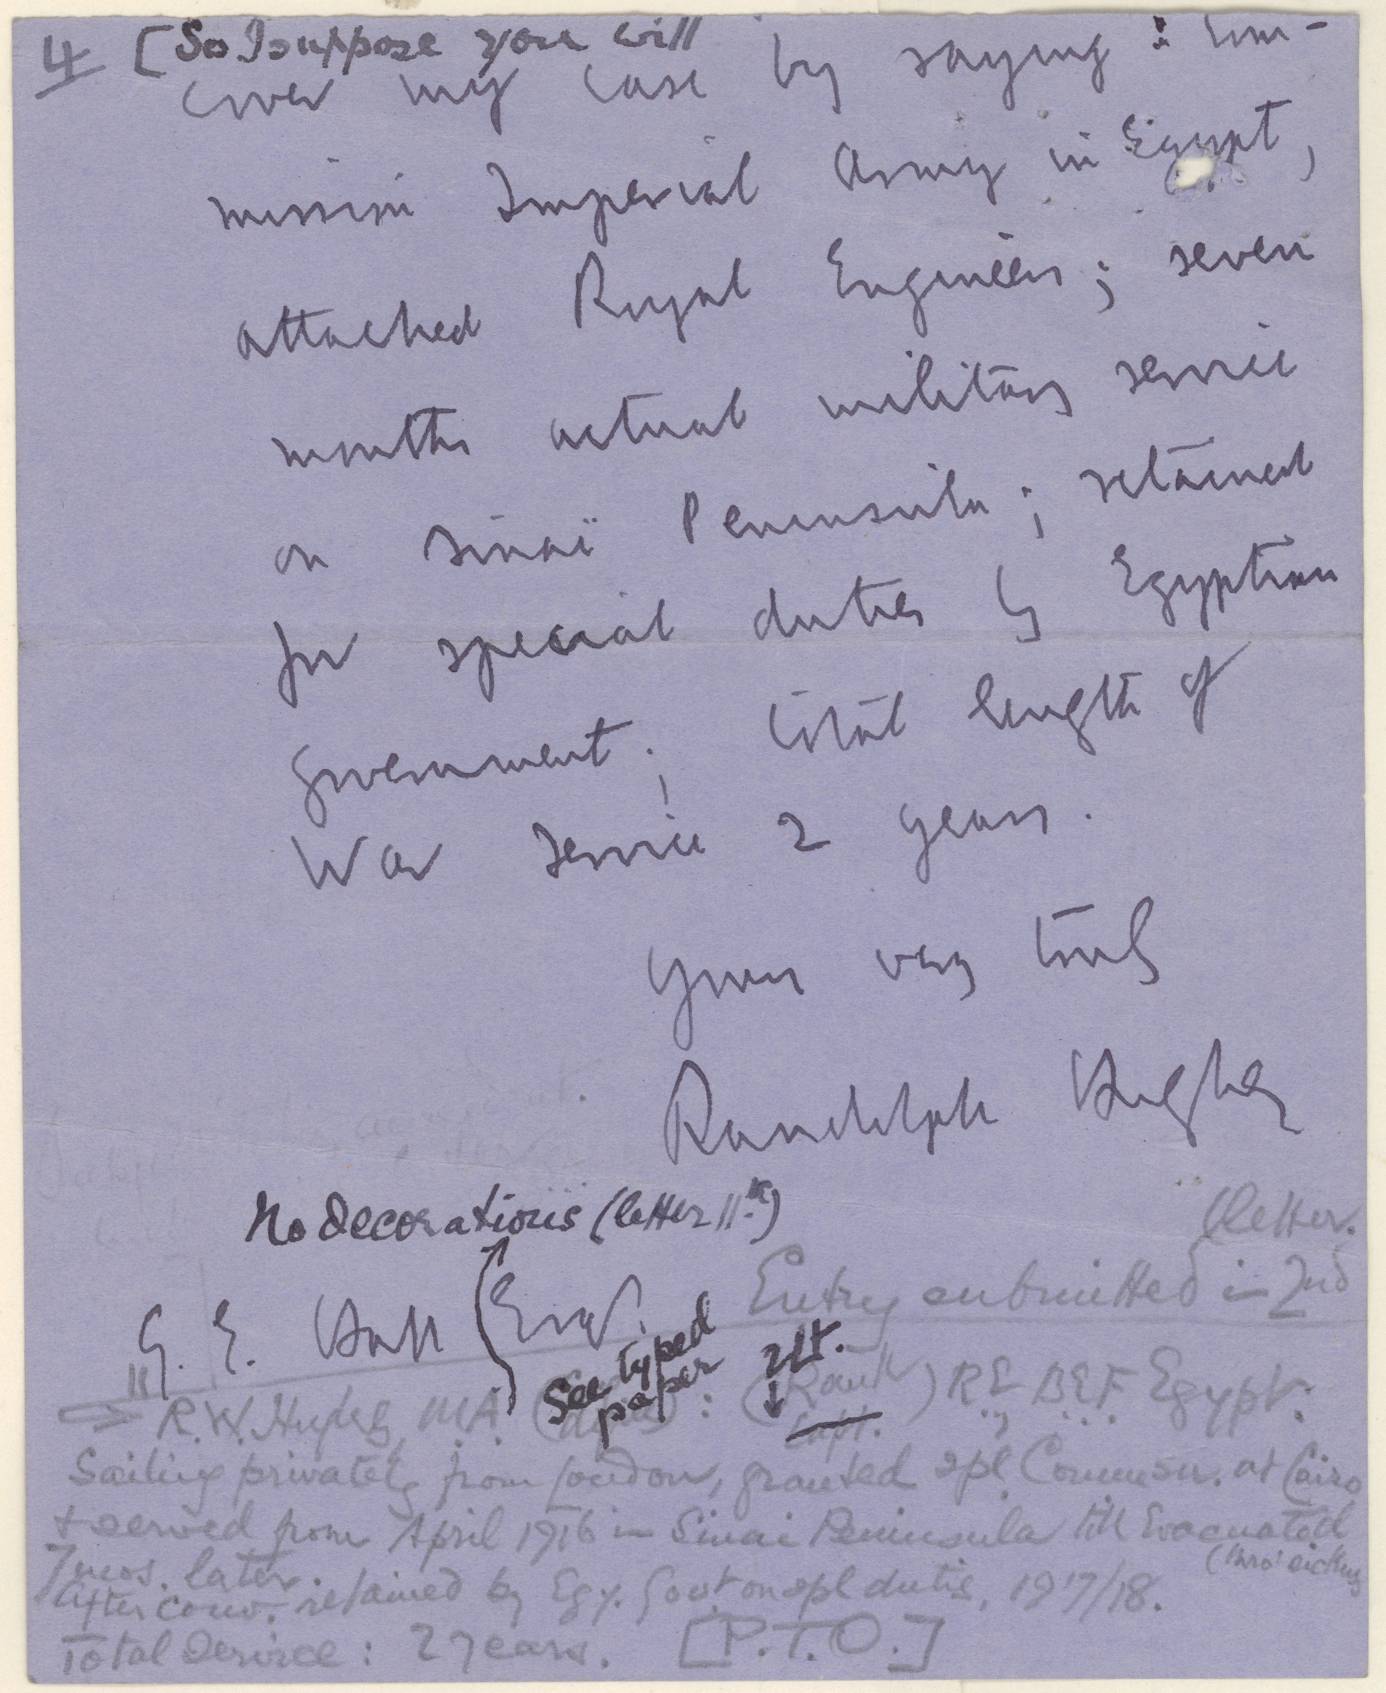 4 [So I suppose you will
cover my case by saying : Com-
mission Imperial Army in Egypt,
attached Royal Engineers; seven
months actual military service
on Sinaï Peninsula; retained
for special duties by Egyptian
Government; total length of
War service 2 years.
Yours very truly
Randolph Hughes
No decorations (letter 11th)
G. E. Hall Esqr.
(letter.
Entry submitted in 2nd
See typed
paper
2Lt.
R.W. Hughes, M.A. : (Rank) R.E. B.E.F. Egypt.
Capt.
Sailing privately from London, granted spl Commsn. at Cairo
& served from April 1916 in Sinai Peninsula till Evacuated
7 mos. later.
After conv. retained by Egy. Govt on spl duties, 1917/18.
Total Service: 2 years. [P.T.O.]